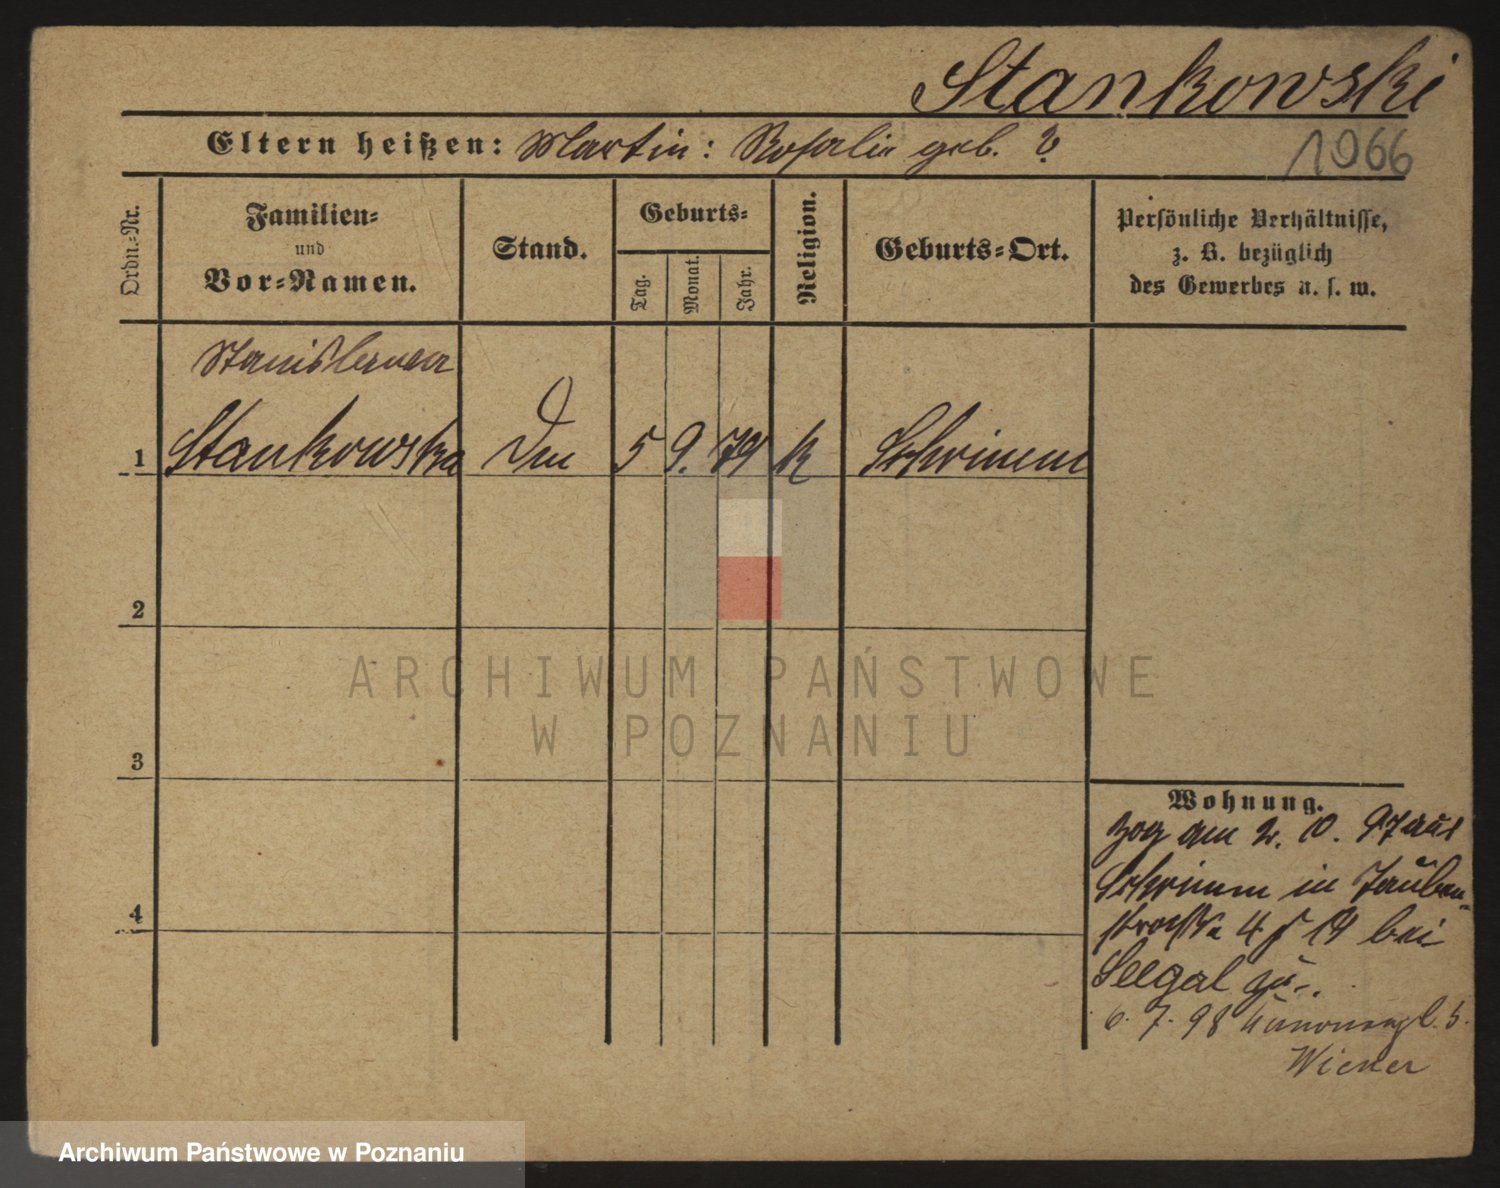 Stankowski
Eltern heißen: Martin: Rosalie geb. ?
1966
Ordn.-Nr.
Familien-
und
Vor-Namen.
Stand.
Geburts-
Tag.
Monat.
Jahr.
Religion.
Geburts-Ort.
Persönliche Verhältnisse,
z. B. bezüglich
des Gewerbes u. s. w.
Stanislawa
1 Stankowska 5 9. 79 k Schrimm
2
3
4
Wohnung.
zog am 2. 10. 97 aus
Schrimm in Tauben-
straße 4 bei
Seegal zu.
6. 7. 98
Wiener
ARCHIWUM PAŃSTWOWE
W POZNANIU
Archiwum Państwowe w Poznaniu